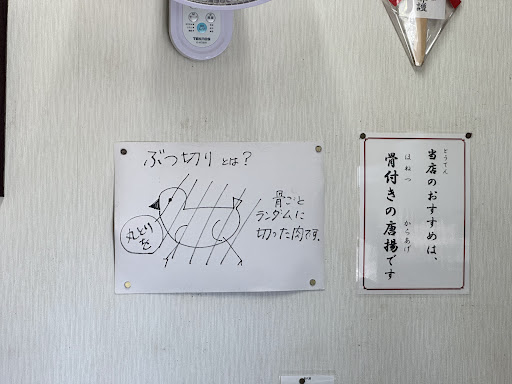 ぶつ切りとは？
丸とりを
骨ごと
ランダムに
切った肉です。
当店のおすすめは、
とうてん
骨付きの唐揚です
ほねつ
からあげ
護